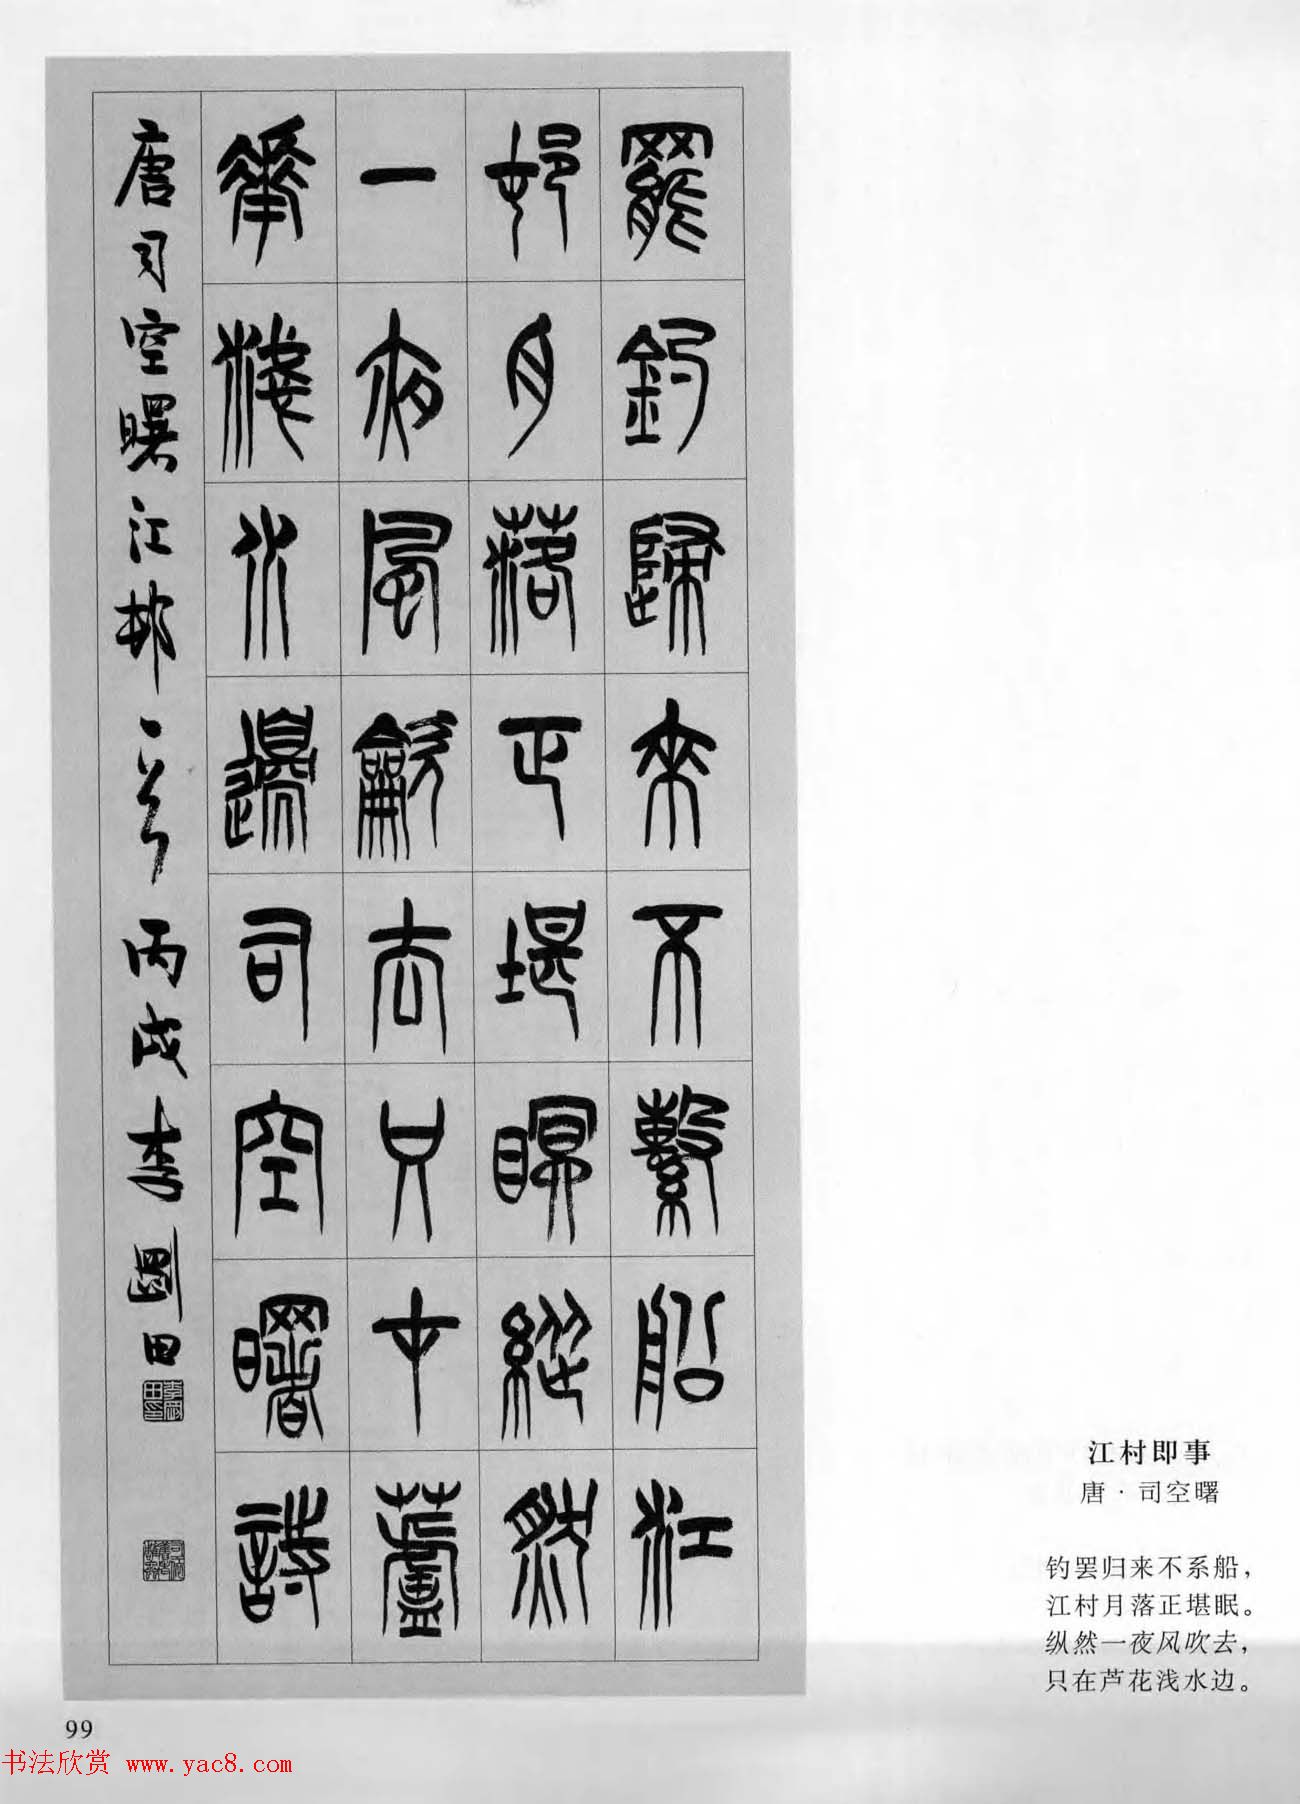 罷釣歸來不繫船江
邨月落正堪瞑縱然
一夜風龡去只才蘆
華淺水邊司空曙詩
唐司空曙江邨一首丙戌李剛田
李剛田印
江村即事
唐·司空曙
钓罢归来不系船，
江村月落正堪眠。
纵然一夜风吹去，
只在芦花浅水边。
99
书法欣赏 www.yac8.com